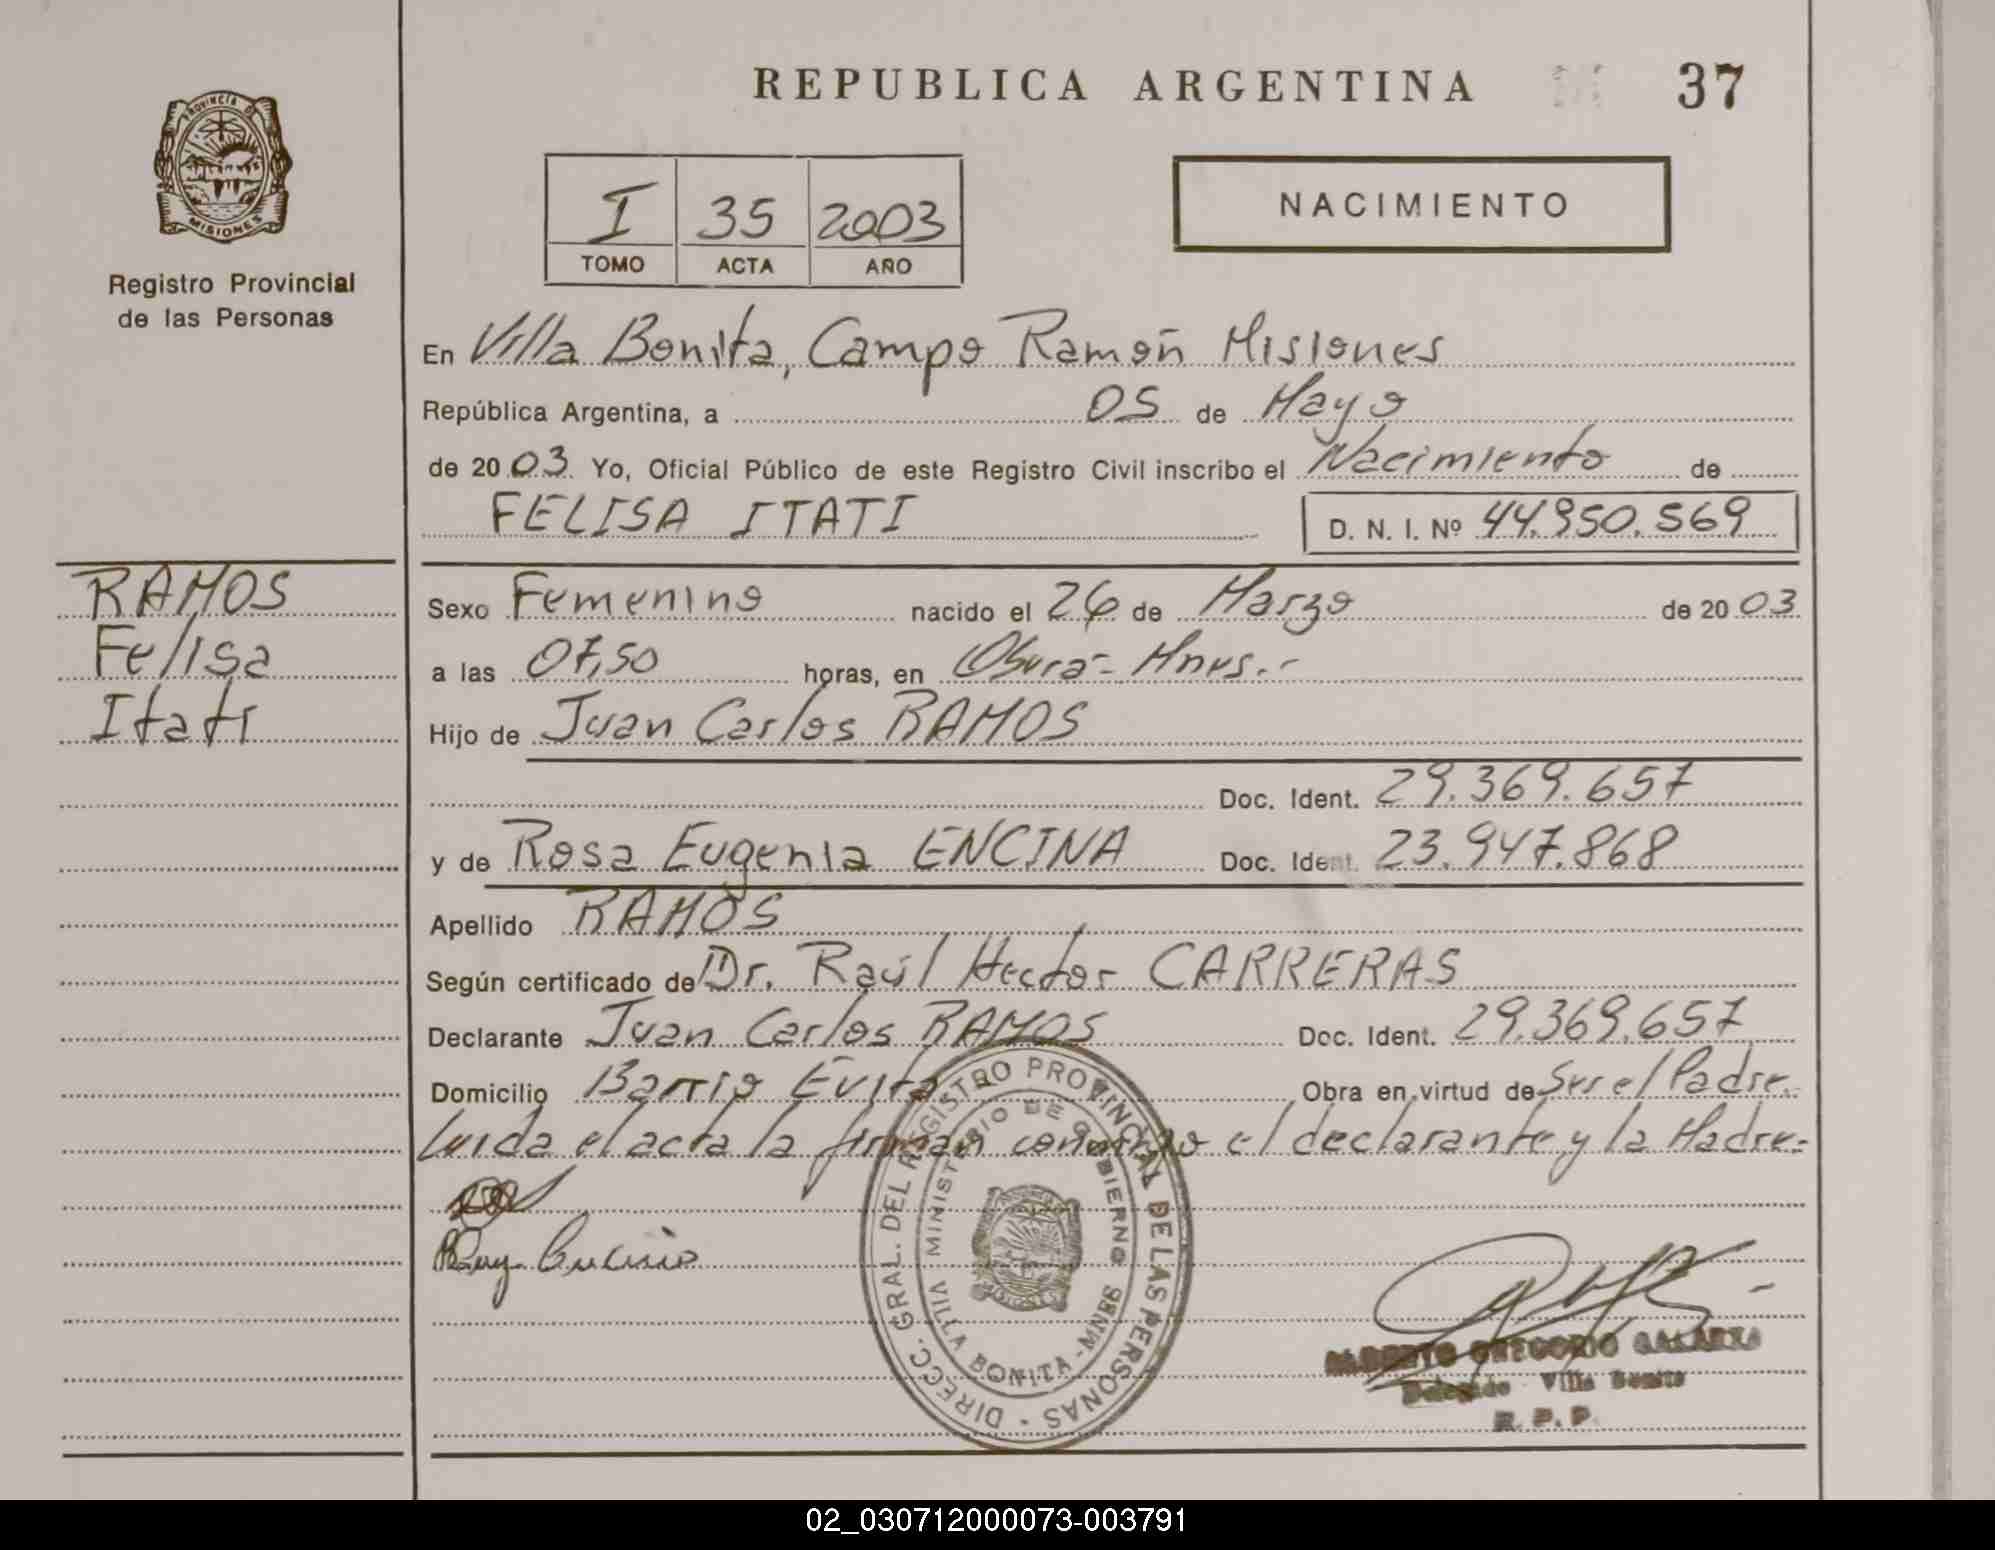 REPUBLICA ARGENTINA
37
PROVINCIA DE
MISIONES
Registro Provincial
de las Personas
I 35 2003
TOMO ACTA AÑO
NACIMIENTO
En Villa Bonita, Campo Ramón Misiones
República Argentina, a 05 de Mayo
de 2003 Yo, Oficial Público de este Registro Civil inscribo el Nacimiento de
FELISA ITATI D. N. I. Nº 44.950.569
RAMOS
Felisa
Itatí
Sexo Femenino nacido el 26 de Marzo de 2003
a las 07,50 horas, en Oberá - Mnes.-
Hijo de Juan Carlos RAMOS
Doc. Ident. 29.369.657
y de Rosa Eugenia ENCINA Doc. Ident. 23.947.868
Apellido RAMOS
Según certificado de Dr. Raúl Hector CARRERAS
Declarante Juan Carlos RAMOS Doc. Ident. 29.369.657
Domicilio Barrio Evita Obra en virtud de Ser el Padre.
Leida el acta la firman conmigo el declarante y la Madre.-
DIRECC. GRAL. DEL REGISTRO PROVINCIAL DE LAS PERSONAS
MINISTERIO DE GOBIERNO
VILLA BONITA - MNES
ALBERTO GREGORIO GALARZA
Delegado Villa Bonita
R. P. P.
02_030712000073-003791